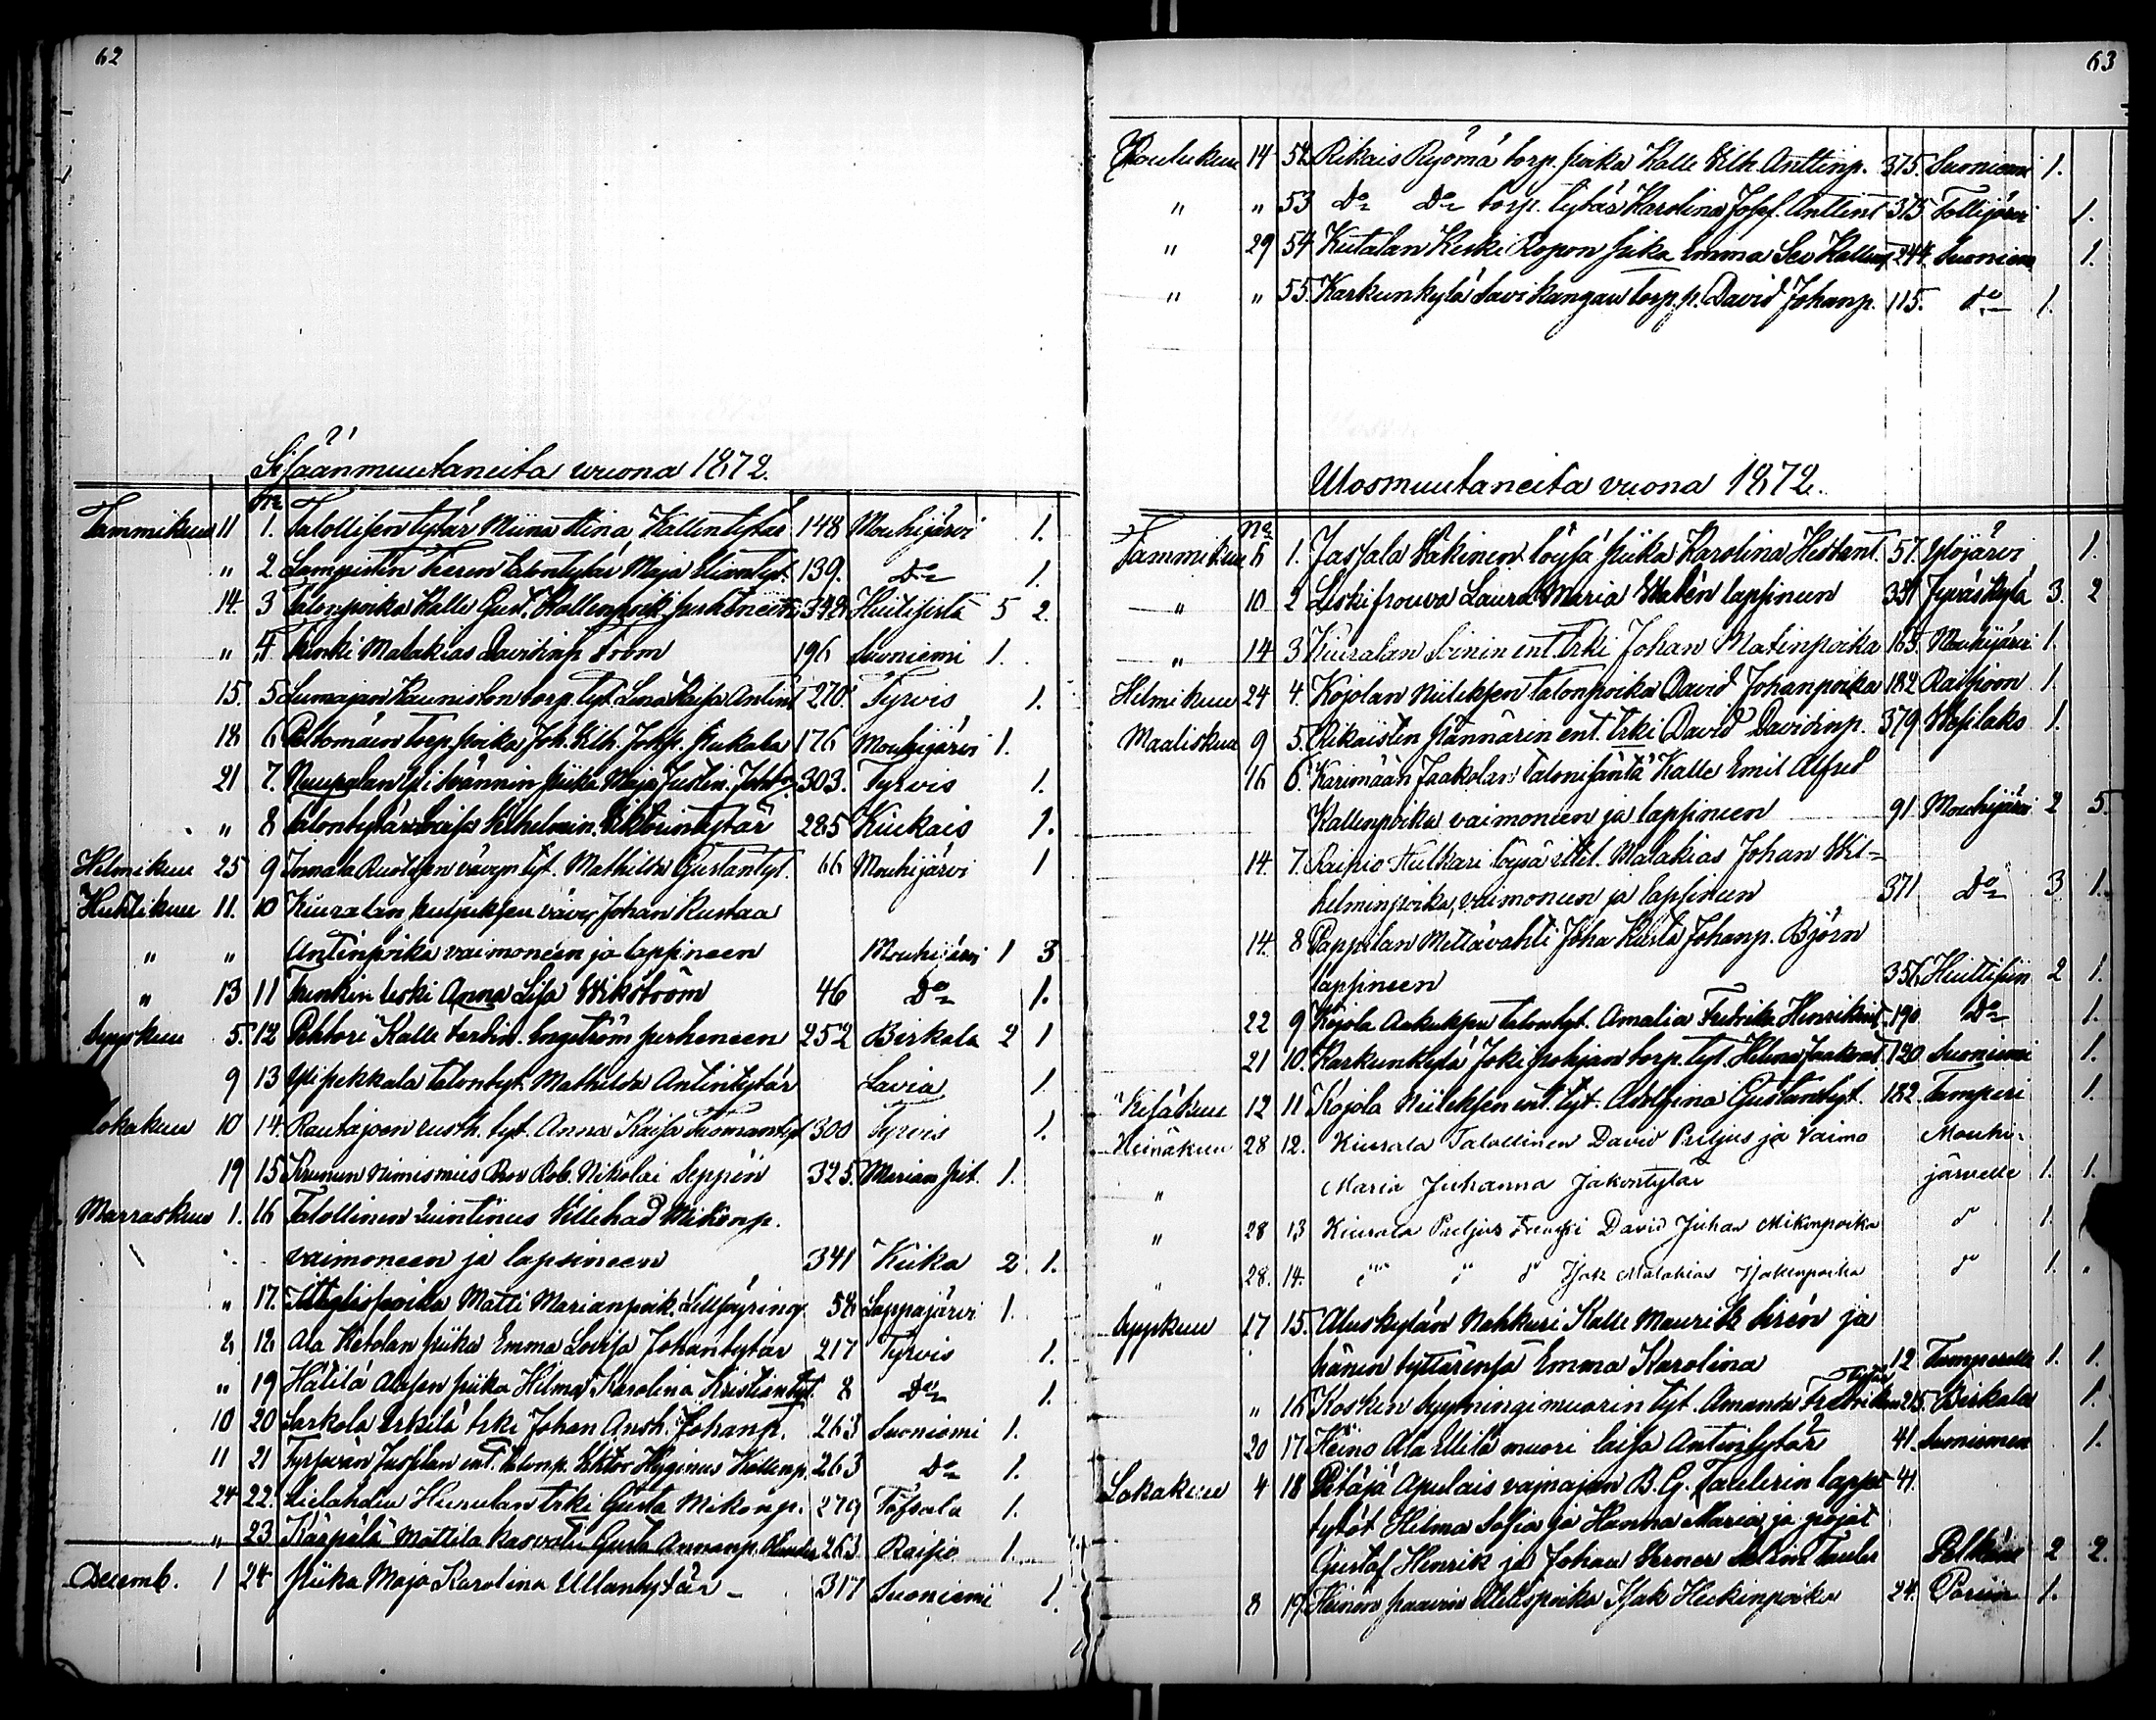 62
Sisäänmuutaneita vuona 1872.
No
Tammikuu 11 1. Talollisen tytär Miina Stina Kallentytär 148 Mouhijärvi 1.
" 2 Lampistin Heren talontytär Maja Stiinantyt. 139. Do 1.
14. 3 Talonpoika Kalle Gust. Kallenpoik. perheneen 348 Huittisista 5 2.
" 4. Renki Malakias Davidinp. From 196 Suoniemi 1.
15. 5 Lumajan Kauniston torp. tyt. Lena Kaisa Antint. 270. Tyrvis 1.
18 6 torp. poika Joh. Wilh. Johp. Kiukala 176 Mouhijärvi 1.
21 7. Nuupalan Yli piika Maja Justin. 303. Tyrvis 1.
" 8 Talontytär Loviisa Wilhelmin. Viktorintytär 285 Kiukais 1.
Helmikuu 25 9 Tomala Ruotsisen vävyn tyt. Mathilda Gustantyt. 66 Mouhijärvi 1
Huhtikuu 11. 10 Kiuralan puljuksen vävy Johan Kustaa
" " Antinpoika vaimoneen ja lapsineen Mouhijärvi 1 3
" 13 11 Renkin leski Anna Lisa Wikström 46 Do 1.
Syyskuu 5. 12 Pehtori Kalle Ferdin. Engström perheneen 252 Birkala 2 1
9 13 Ylipekkala talontyt. Mathilda Antintytär Lavia 1.
Lokakuu 10 14. Rautajoen rusth. tyt. Anna Kaisa Tuomantyt 300 Tyrvis 1.
19 15 Krunun Nimismies Rob. Nikolai Seppén 325. Marian pit. 1.
Marraskuu 1. 16 Talollinen Quintinus Villehad Mikonp.
vaimoneen ja lapsineen 341 Kiika 2 1.
" 17. Matti Marianpoik. 58 Lappajärvi 1.
2 18 Ala Ketolan piika Emma Lovisa Johantytär 217 Tyrvis 1.
" 19 Hätilä piika Hilma Karolina Kristiantyt. 8 Do 1.
10 20 Sarkola Erkilä trki Johan Ansh. Johanp. 263 Suoniemi 1.
11 21 Tyrisevän ent. talonp. Viktor Hyginus Kallenp. 263 Do 1.
24 22. Lielahden trki Gusta Mikonp. 279 Töfsala 1.
" 23 Kärpälä Mattila kasvatti Gusta Annanp. 263 Raisio 1.
Decemb. 1 24 piika Maja Karolina Ullantytär 317 Suoniemi 1.
63
Joulukuu 14 52 Rikais Ryömä torp. poika Kalle Vilh. Anttinp. 375. Suoniemi 1.
" " 53 Do Do torp. tytär Karolina Josef. Anttint 375 Tottijärvi 1.
" 29 54 Kutalan Keski Ropon piika Emma Kallent. 244. Suoniemi 1.
" " 55. Karkunkylä Savikangas torp. p. David Johanp. 115. do 1.
Ulosmuutaneita vuona 1872.
No
Tammikuu 6 1. Jassala löysä piika Karolina 57. Ylöjärvi 1.
" 10 2 Leskifrouva Laura Maria Walén lapsineen 351 Jyväskylä 3. 2
" 14 3 Kiuralan Soinin ent. trki Johan Matinpoika 163. Mouhijärvi 1.
Helmikuu 24 4. Kojolan Niileksen talonpoika David Johanpoika 182 Raisioon 1.
Maaliskuu 9 5. Rikaisten Pännärin ent. trki David Davidinp. 379 Wesilaks 1.
16 6. Karimään Jaakolan talonisäntä Kalle Emil Alfred
Kallenpoika vaimoneen ja lapsineen 91 Mouhijärvi 2 5.
14. 7. Raipio Hulkari löysä Malakias Johan Wil=
helminpoika, vaimoneen ja lapsineen 371 Do 3 1.
14. 8 Pappilan Mettävahti Joha Kusta Johanp. Björn
lapsineen 356. Huittisiin 2 1.
22 9 Kojola talontyt. Amalia Fredrika Henrikint. 190 Do 1.
21 10. Karkunkylä Jokipohjan torp. tyt. Helena Jaakont. 120 Suoniemi 1.
Kesäkuu 12 11 Kojola Niileksen ent. tyt. Adolfina Gustantyt. 182. Tamperi 1.
Heinäkuu 28 12. Kiurala Talollinen David Puljus ja vaimo Mouhi-
" Maria Juhanna Jakontytär järvelle 1. 1.
" 28 13 Kiurala Puljus Trenki David Juhan Mikonpoika do 1.
" 28. 14. " " do Isak Malakias Isakinpoika do 1.
Syyskuu 17 15. Aluskylän Nahkuri Kalle Maurits Sirén ja
hänen tyttärensä Emma Karolina 12 Tamperelle 1. 1.
tytär
" 16 Kosken Syyningimuorin tyt. Amanda Fredrikan 215. Birkala 1.
20 17 Heino Ala Ellilä muori Caisa Antintytär 41. Suoniemen 1.
Lokakuu 4 18 Pitäjä Apulais vainajan B. G. lapset 41.
tytöt Hilma Sofia ja Hanna Maria ja pojat
Gustaf Henrik ja Johan Verner Pelkäne 2 2.
8 19. Heinon paavin Isak Heikinpoika 24. Poriin 1.